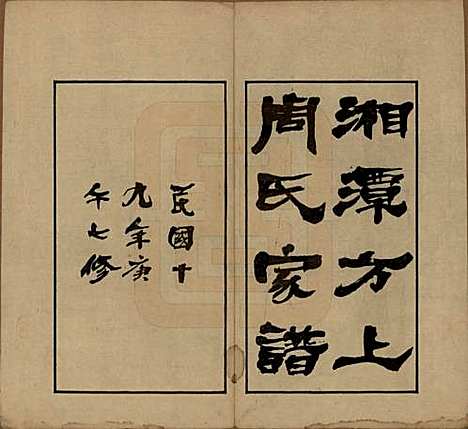 湘潭方上
周氏家譜
民國十
九年庚
午七修